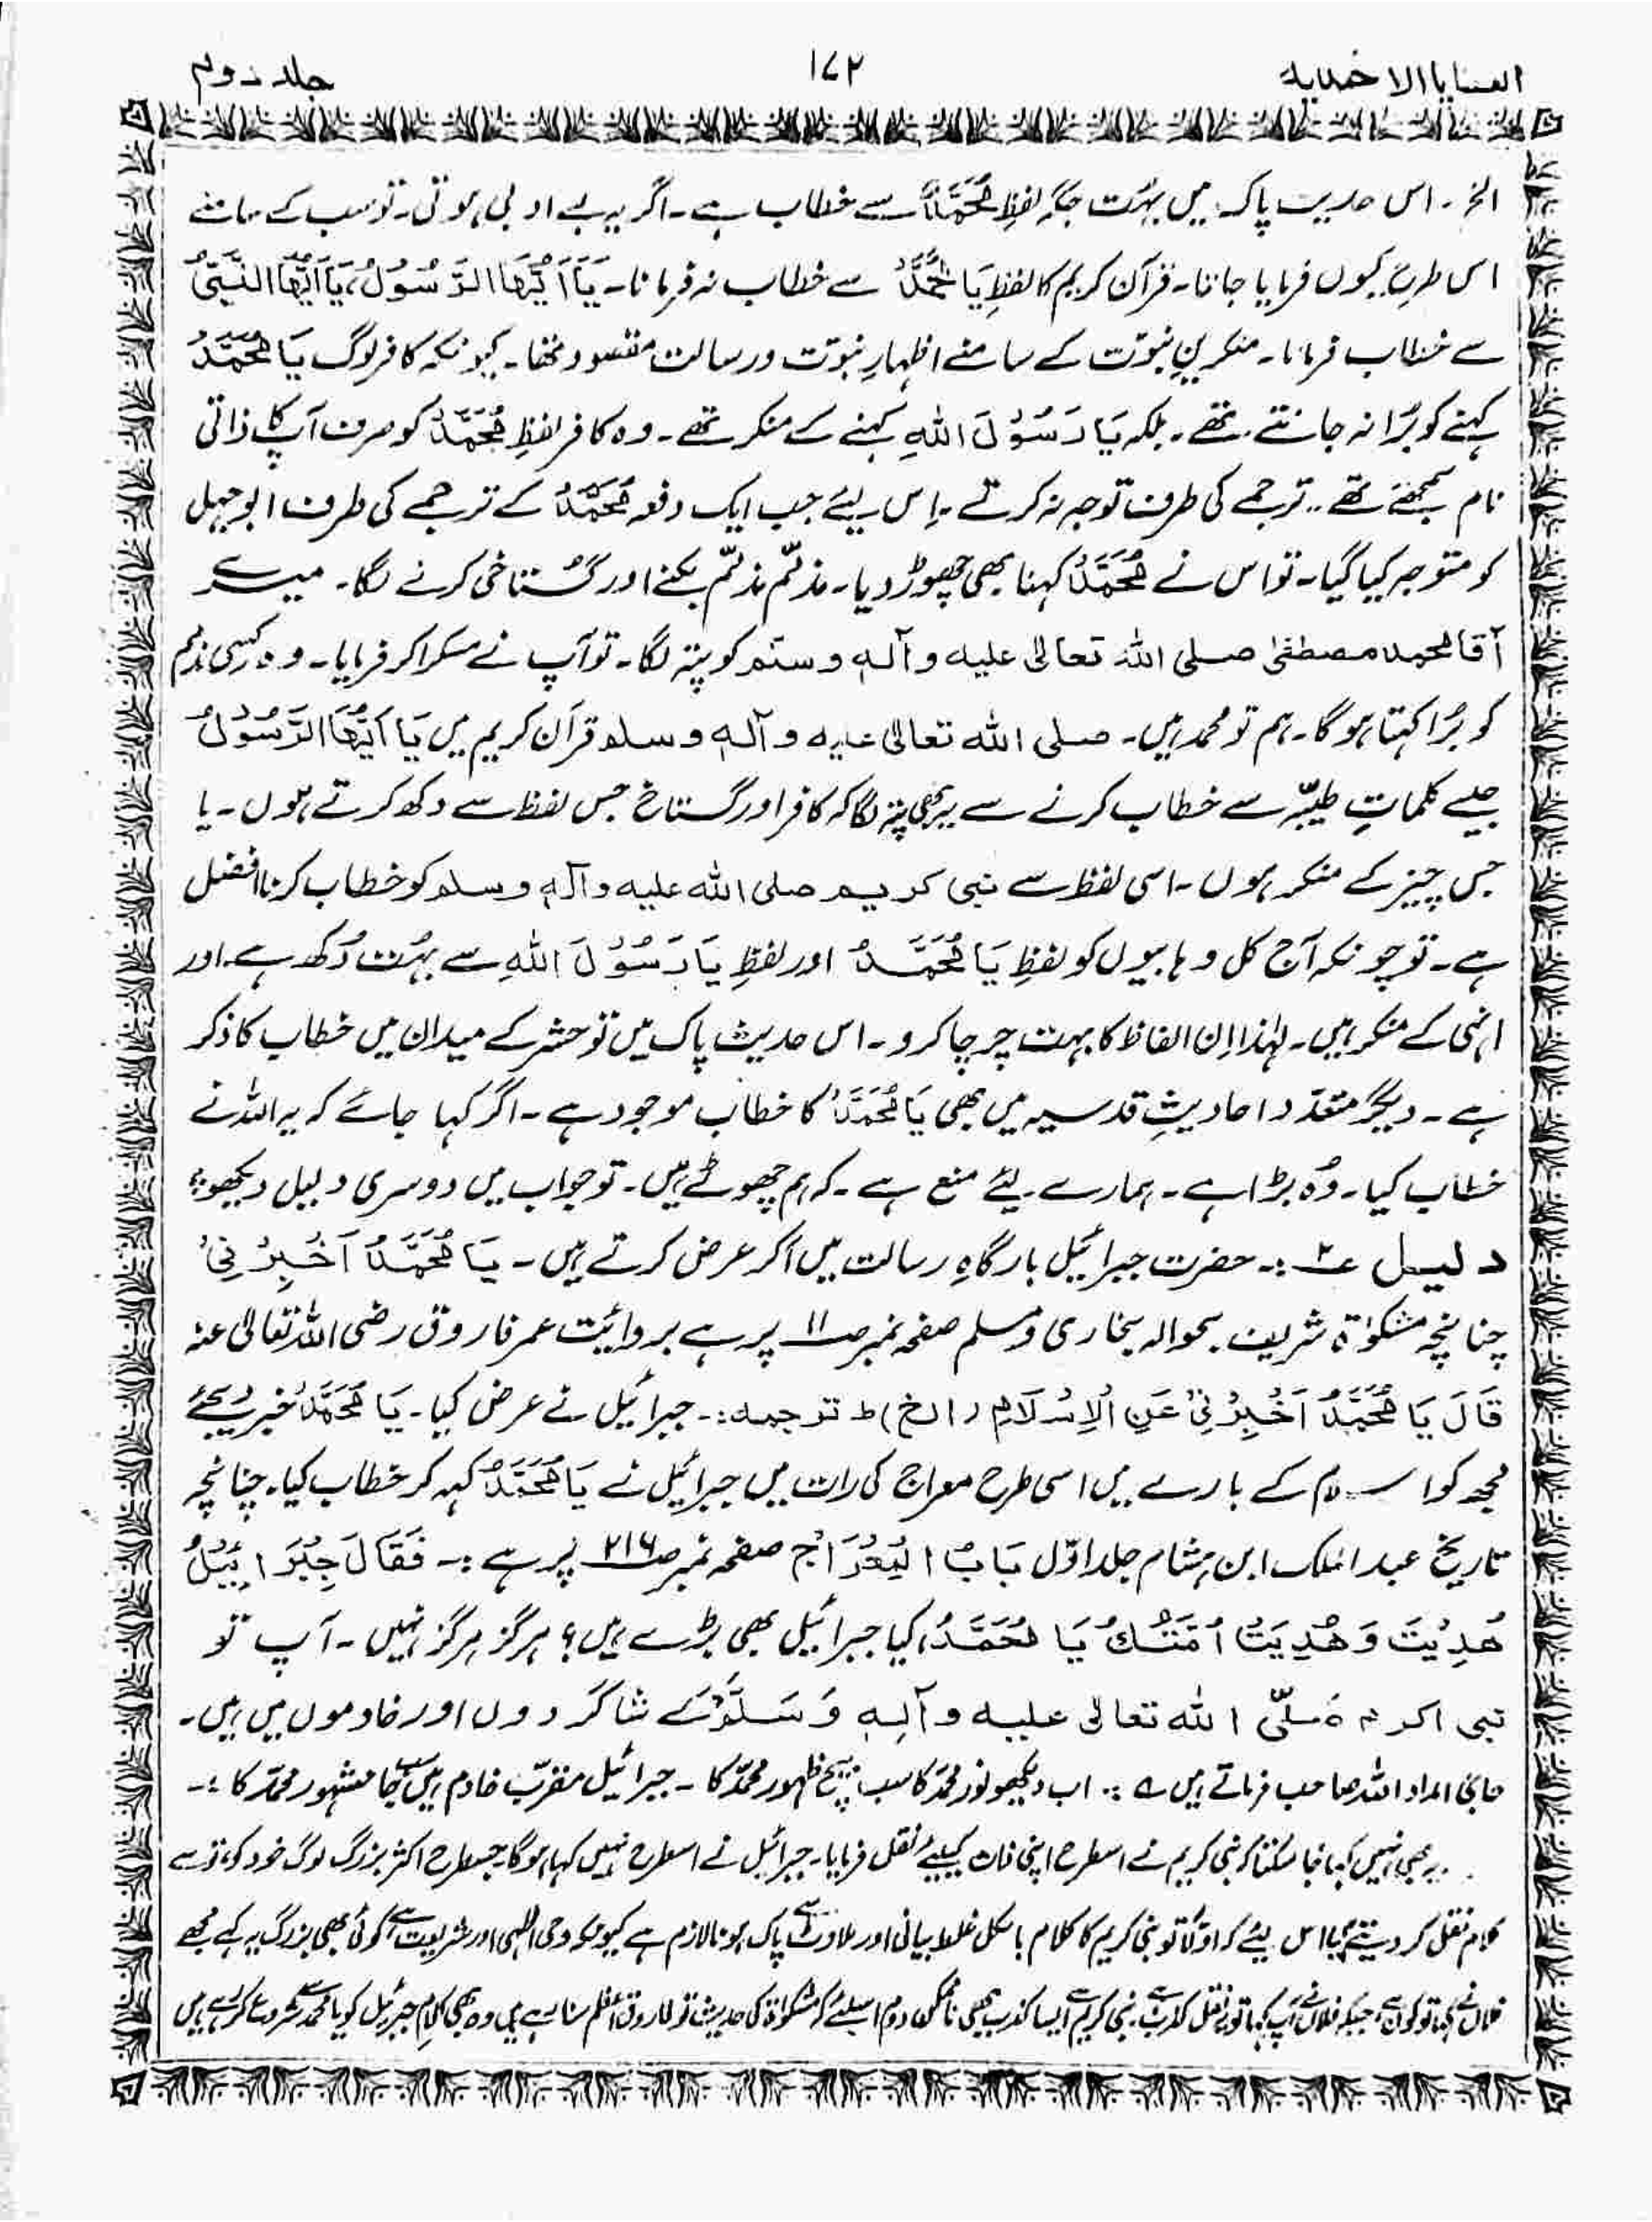 العطایا الاحمدیہ ۱۷۲ جلد دوم
الخ۔ اس حدیث پاک میں بہُت جگہ لفظِ مُحَمَّدٌ سے خطاب ہے۔ اگر یہ بے ادبی ہوتی۔ تو سب کے سامنے
اس طرح کیوں فرمایا جاتا۔ قرآن کریم کا لفظِ یَا مُحَمَّدُ سے خطاب نہ فرمانا۔ یَا اَیُّهَا الرَّسُوْلُ، یَا اَیُّهَا النَّبِیُّ
سے خطاب فرمانا۔ منکرینِ نبوّت کے سامنے اظہارِ نبوّت و رسالت مقصود تھا۔ کیونکہ کافر لوگ یَا مُحَمَّدُ
کہنے کو بُرا نہ جانتے تھے۔ بلکہ یَا رَسُوْلَ اللهِ کہنے کے منکر تھے۔ وہ کافر لفظِ مُحَمَّدُ کو صرف آپ کا ذاتی
نام سمجھتے تھے۔ ترجمے کی طرف توجہ نہ کرتے۔ اِس لیئے جب ایک دفعہ مُحَمَّدُ کے ترجمے کی طرف ابوجہل
کو متوجہ کیا گیا۔ تو اس نے مُحَمَّدُ کہنا بھی چھوڑ دیا۔ مذمّم مذمّم بکنے اور گستاخی کرنے لگا۔ میرے
آقا محمد مصطفیٰ صلی اللہ تعالیٰ علیہ وآلہٖ وسلم کو پتہ لگا۔ تو آپ نے مسکرا کر فرمایا۔ وہ کسی مذمم
کو بُرا کہتا ہوگا۔ ہم تو محمد ہیں۔ صلی اللہ تعالیٰ علیہ وآلہٖ وسلم قرآن کریم میں یَا اَیُّهَا الرَّسُوْلُ
جیسے کلماتِ طیبّہ سے خطاب کرنے سے یہ بھی پتہ لگا کہ کافر اور گستاخ جس لفظ سے دکھ کرتے ہوں۔ یا
جس چیز کے منکر ہوں۔ اسی لفظ سے نبی کریم صلی اللہ علیہ وآلہٖ وسلم کو خطاب کرنا افضل
ہے۔ تو چونکہ آج کل وہابیوں کو لفظِ یَا مُحَمَّدُ اور لفظِ یَا رَسُوْلَ اللهِ سے بہُت دُکھ ہے۔ اور
انہی کے منکر ہیں۔ لہٰذا اِن الفاظ کا بہت چرچا کرو۔ اس حدیث پاک میں تو حشر کے میدان میں خطاب کا ذکر
ہے۔ دیگر متعدّد احادیثِ قدسیہ میں بھی یَا مُحَمَّدُ کا خطاب موجود ہے۔ اگر کہا جائے کہ یہ اللہ نے
خطاب کیا۔ وُہ بڑا ہے۔ ہمارے لئے منع ہے۔ کہ ہم چھوٹے ہیں۔ تو جواب میں دوسری دلیل دیکھو؛
دلیل ۲؎ :۔ حضرت جبرائیل بارگاہِ رسالت میں آکر عرض کرتے ہیں۔ یَا مُحَمَّدُ اَخْبِرْنِیْ
چنانچہ مشکوٰۃ شریف بحوالہ بخاری و مسلم صفحہ نمبر صـ۱۱ پر ہے بروائیت عمر فاروق رضی اللہ تعالیٰ عنہ
قَالَ یَا مُحَمَّدُ اَخْبِرْنِیْ عَنِ الْاِسْلَامِ (الخ) ط ترجمہ :۔ جبرائیل نے عرض کیا۔ یَا مُحَمَّدُ خبر دیجئے
مجھ کو اسلام کے بارے میں اسی طرح معراج کی رات میں جبرائیل نے یَا مُحَمَّدُ کہہ کر خطاب کیا۔ چنانچہ
تاریخ عبدالملک ابن ہشام جلد اوّل بَابُ الْمِعْرَاج صفحہ نمبر صـ۲۱۶ پر ہے :۔ فَقَالَ جِبْرَائِیْلُ
هُدِیْتَ وَهُدِیَتْ اُمَّتُكَ یَا مُحَمَّدُ، کیا جبرائیل بھی بڑے ہیں؟ ہرگز ہرگز نہیں۔ آپ تو
نبی اکرم صَلّیَ اللہ تعالیٰ علیہ وآلہٖ وَسَلَّمَ کے شاگردوں اور خادموں میں ہیں۔
حاجی امداد اللہ صاحب فرماتے ہیں ؎ :۔ اب دیکھو نور محمدؐ کا سب بیچ ظہور محمدؐ کا۔ جبرائیل مقرّب خادم ہیں سب جا مشہور محمدؐ کا :۔
یہ بھی نہیں کہا جا سکتا کہ نبی کریم نے اسطرح اپنی ذات کیلئے نقل فرمایا۔ جبرائیل نے اسطرح نہیں کہا ہوگا۔ جسطرح اکثر بزرگ لوگ خود کو تُو سے
کلام نقل کر دیتے ہیں۔ اس لیئے کہ اوّلًا تو نبی کریم کا کلام بالکل غلط بیانی اور ملاوٹ سے پاک ہونا لازم ہے کیونکہ وحی الٰہی اور شریعت ہے کوئی بھی بزرگ یہ کہے مجھے
فلاں نے کہا تو کون ہے، جبکہ فلاں نے آپ کہا تو یہ نقل کذب ہے۔ نبی کریم سے ایسا کذب بھی ناممکن دوم اسلئے کہ مشکوٰۃ کی حدیث تو فاروق اعظم سنا رہے ہیں وہ بھی کلامِ جبرئیل کو یا محمد سے شروع کر رہے ہیں